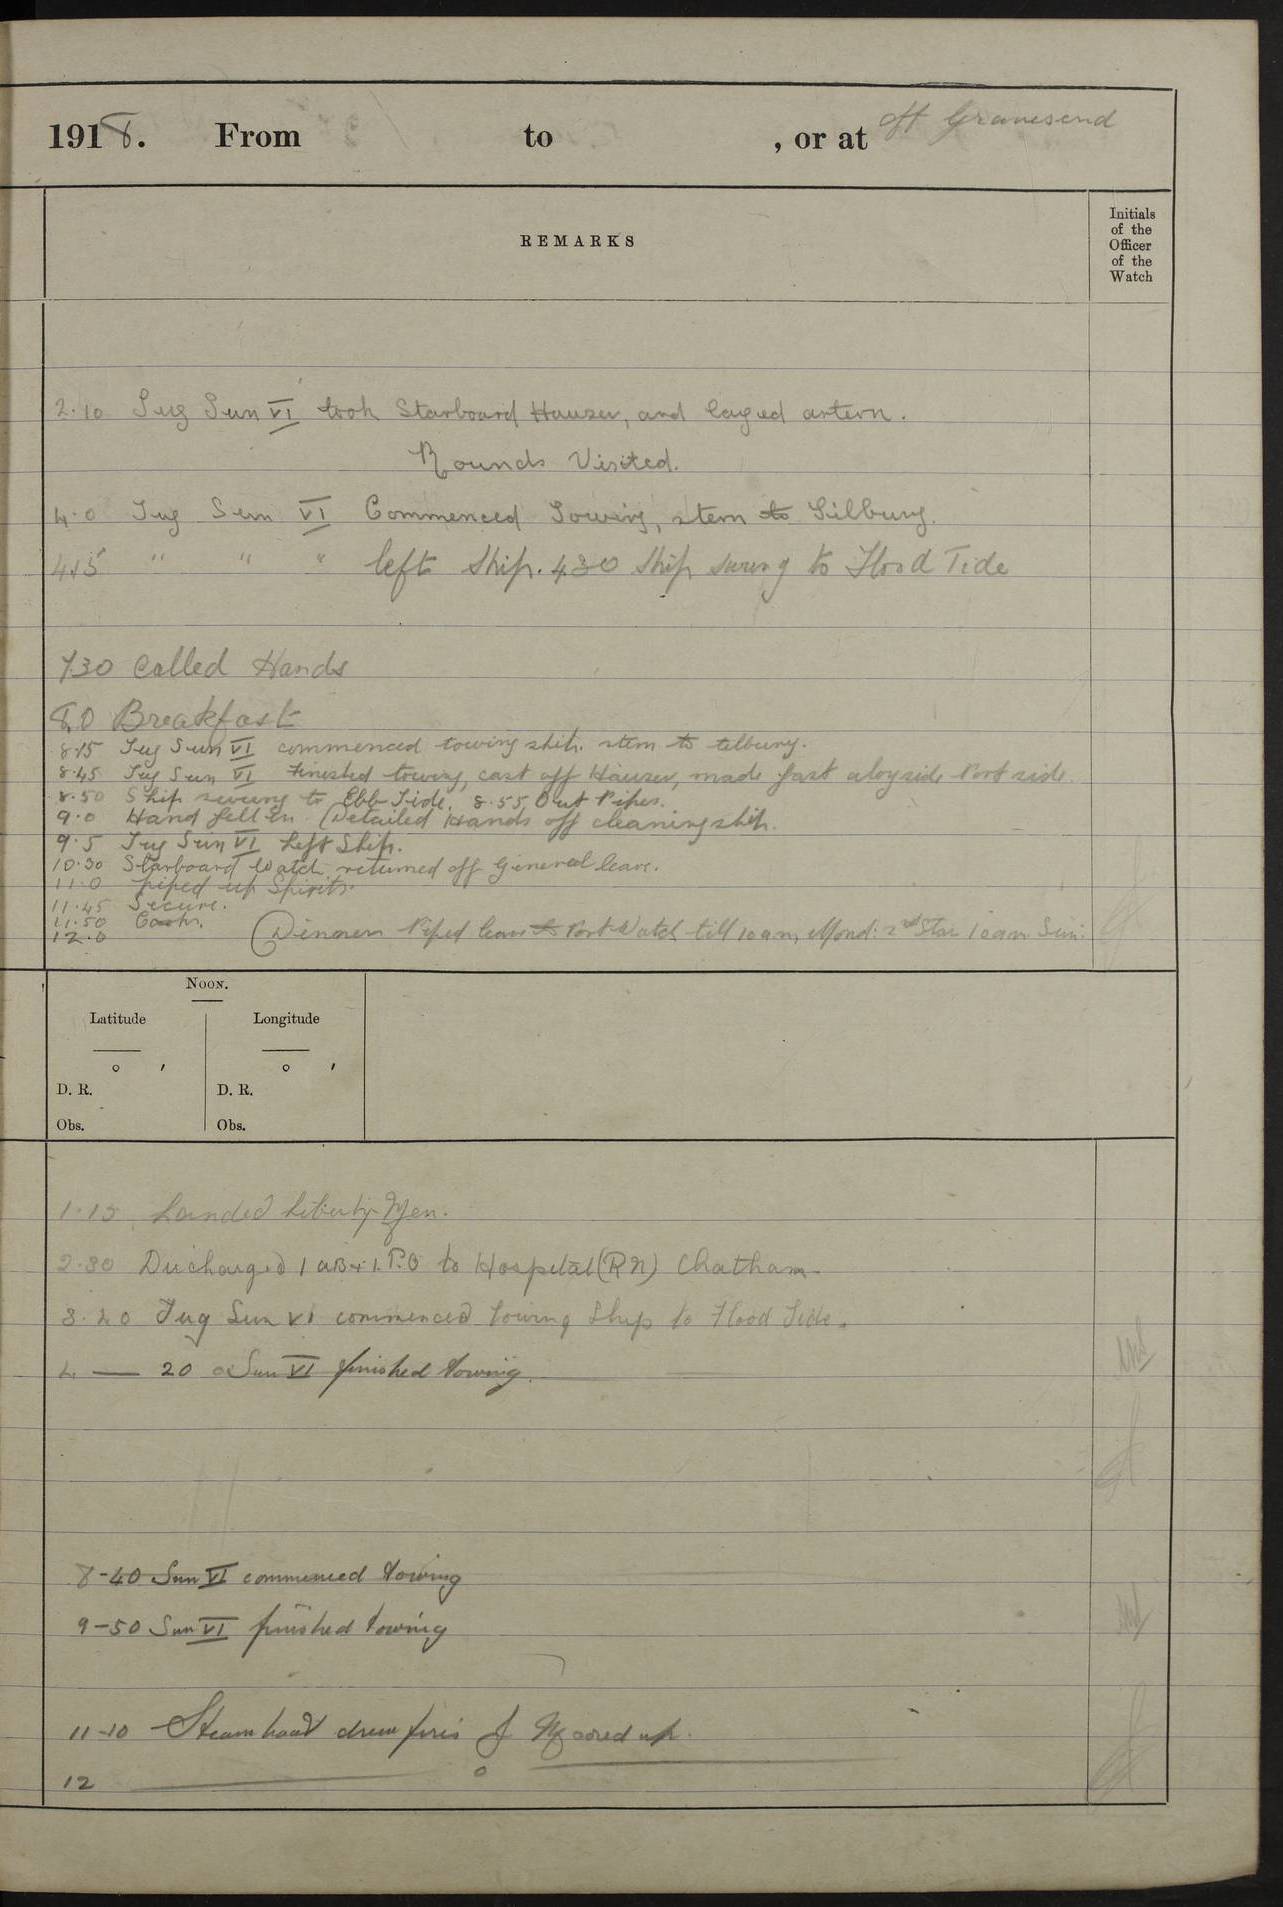 1918. From to , or at off Gravesend
REMARKS
Initials
of the
Officer
of the
Watch
2.10 Tug Sun VI took Starboard Hauser, and layed astern.
Rounds Visited.
4.0 Tug Sun VI Commenced Towing, stern to Tilbury.
4.15 " " " left Ship. 4.30 Ship swung to Flood Tide
7.30 Called Hands
8.0 Breakfast
8.15 Tug Sun VI commenced towing ship. stern to tilbury.
8.45 Tug Sun VI Finished towing, cast off Hauser, made fast alogside Port side.
8.50 Ship swung to Ebb Tide. 8.55 Out Pipes.
9.0 Hand fell In (Detailed Hands off cleaning ship.
9.5 Tug Sun VI Left Ship.
10.30 Starboard Watch returned off General leave.
11.0 piped up Spirits.
11.45 Secure.
11.50 Cooks.
12.0 (Dinners Piped leave to Port Watch till 10 am, Mond: 2nd Star 10 am Sun:
NOON.
Latitude Longitude
° ′ ° ′
D. R. D. R.
Obs. Obs.
1.15 Landed Liberty Men.
2.30 Discharged 1 AB + 1. P.O to Hospital (RN) Chatham.
3.20 Tug Sun VI commenced towing Ship to Flood Tide.
4 — 20 Sun VI finished towing.
8-40 Sun VI commenced towing
9-50 Sun VI finished towing
11-10 Steamboat drew fires & Moored up.
12